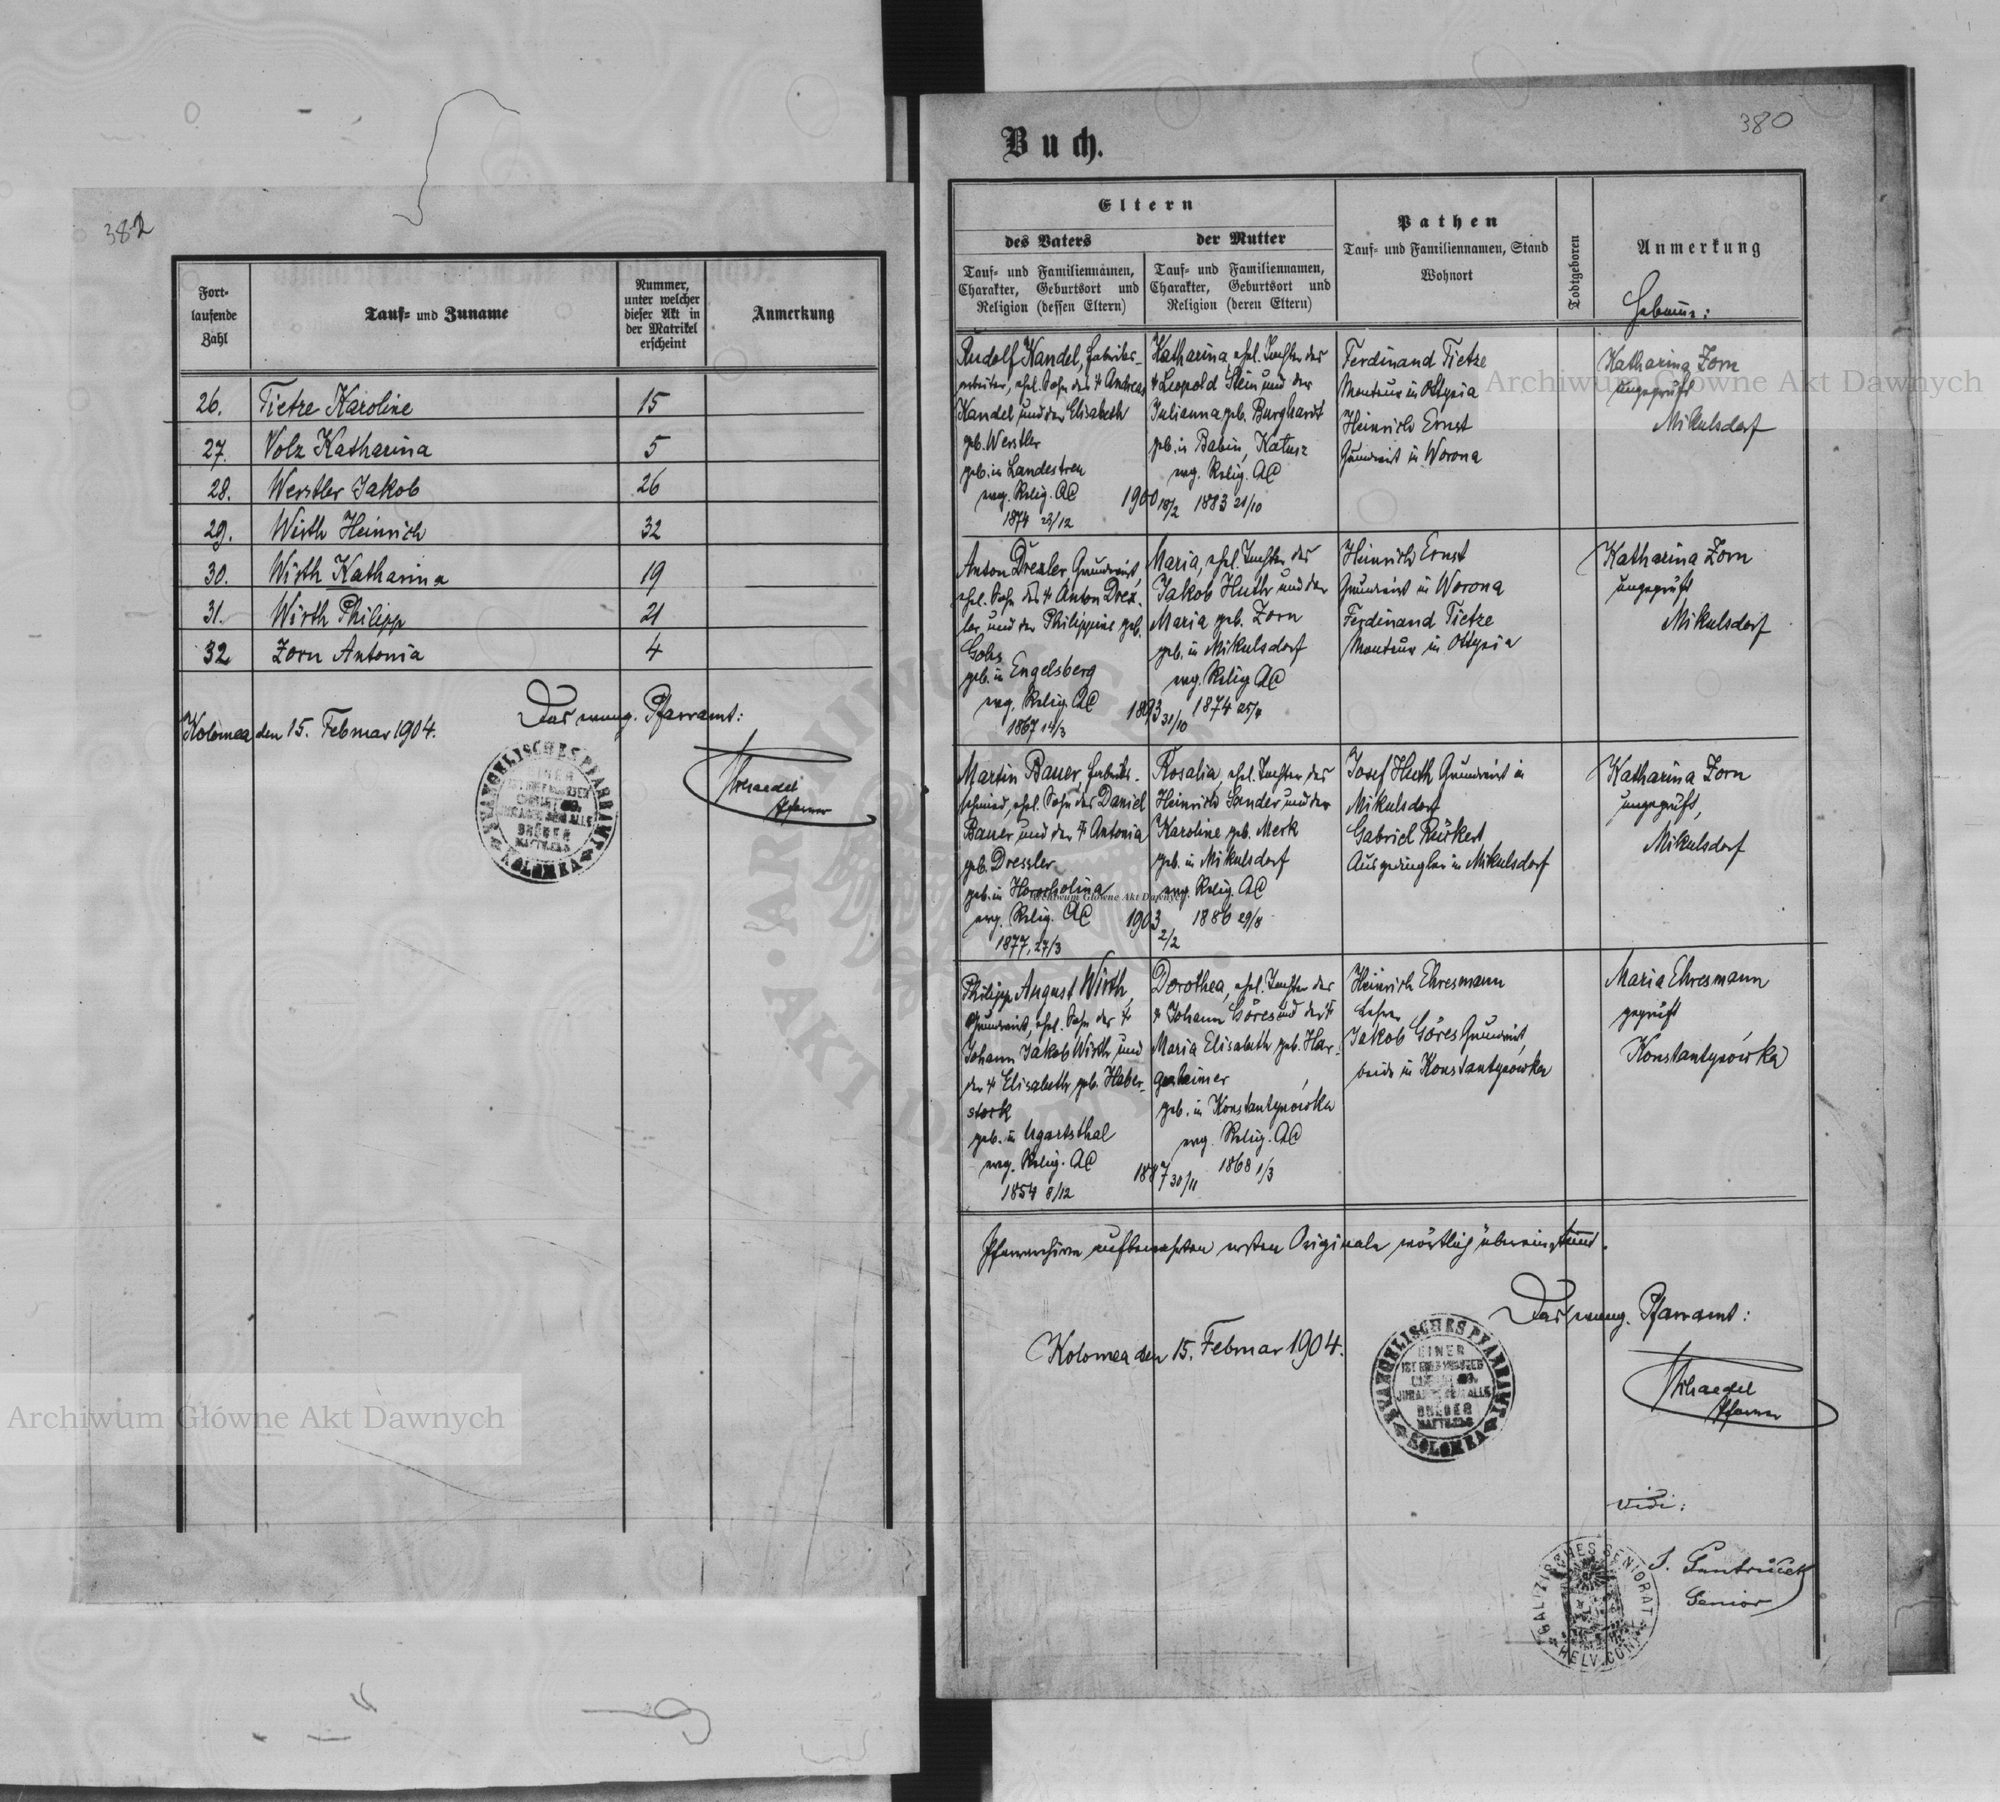 382
Fort-
laufende
Zahl
Tauf- und Zuname
Nummer,
unter welcher
dieser Akt in
der Matrikel
erscheint
Anmerkung
26. Tietze Karoline 15
27. Volz Katharina 5
28. Werstler Jakob 26
29. Wirth Heinrich 32
30. Wirth Katharina 19
31. Wirth Philipp 21
32 Zorn Antonia 4
Kolomea den 15. Februar 1904.
Das evang. Pfarramt:
EVANGELISCHES PFARRAMT
EINER
BRÜDER
MATTH.
KOLOMEA
Schaedel
Pfarrer
Archiwum Główne Akt Dawnych
380
Buch.
Eltern
des Vaters
Tauf- und Familiennamen,
Charakter, Geburtsort und
Religion (dessen Eltern)
der Mutter
Tauf- und Familiennamen,
Charakter, Geburtsort und
Religion (deren Eltern)
Pathen
Tauf- und Familiennamen, Stand
Wohnort
Todtgeboren
Anmerkung
Hebamme:
Rudolf Kandel, Fabriks-
arbeiter, ehel. Sohn des † Andreas
Kandel und der Elisabeth
geb. Werstler
geb. in Landestreu
evg. Relig. AC
1874 23/12
1900 18/2
Katharina, ehel. Tochter des
† Leopold Stein und der
Julianna geb. Burghardt
geb. in Babin, Kalusz
evg. Relig. AC
1883 21/10
Ferdinand Tietze
Monteur in Ottynia
Heinrich Ernst
Grundwirt in Worona
Katharina Zorn
ungeprüft
Mikulsdorf
Anton Drexler Grundwirt,
ehel. Sohn des † Anton Drex-
ler und der Philippine geb.
geb. in Engelsberg
evg. Relig. AC
1867 14/3
1893 31/10
Maria, ehel. Tochter des
Jakob Huth und der
Maria geb. Zorn
geb. in Mikulsdorf
evg. Relig. AC
1874 25/4
Heinrich Ernst
Grundwirt in Worona
Ferdinand Tietze
Monteur in Ottynia
Katharina Zorn
ungeprüft
Mikulsdorf
Martin Bauer, Fabriks-
schmied, ehel. Sohn des Daniel
Bauer und der † Antonia
geb. Dressler
geb. in Horocholina
evg. Relig. AC
1877, 27/3
1903 2/2
Rosalia, ehel. Tochter des
Heinrich Sander und der
Karoline geb. Merk
geb. in Mikulsdorf
evg. Relig. AC
1886 29/8
Josef Huth Grundwirt in
Mikulsdorf
Gabriel Rückert,
Ausgedingler in Mikulsdorf
Katharina Zorn
ungeprüft,
Mikulsdorf
Philipp August Wirth,
Grundwirt, ehel. Sohn des †
Johann Jakob Wirth und
der † Elisabeth geb. Haber-
stock
geb. in Ugartsthal
evg. Relig. AC
1854 8/12
1887 30/11
Dorothea, ehel. Tochter des
† Johann Göres und der †
Maria Elisabeth geb. Har-
geb. in Konstantynówka
evg. Relig. AC
1868 1/3
Heinrich Ehresmann
Lehrer
Jakob Göres Grundwirt,
beide in Konstantynówka
Maria Ehresmann
geprüft
Konstantynówka
Pfarrarchive aufbewahrten ersten Originale wörtlich übereinstimmt.
Kolomea den 15. Februar 1904.
Das evang. Pfarramt:
EVANGELISCHES PFARRAMT
EINER
BRÜDER
MATTH.
KOLOMEA
Schaedel
Pfarrer
vidi:
Senior
GALIZISCHES SENIORAT
HELV. CONF.
Archiwum Główne Akt Dawnych
Archiwum Główne Akt Dawnych
ARCHIWUM GŁÓWNE AKT DAWNYCH